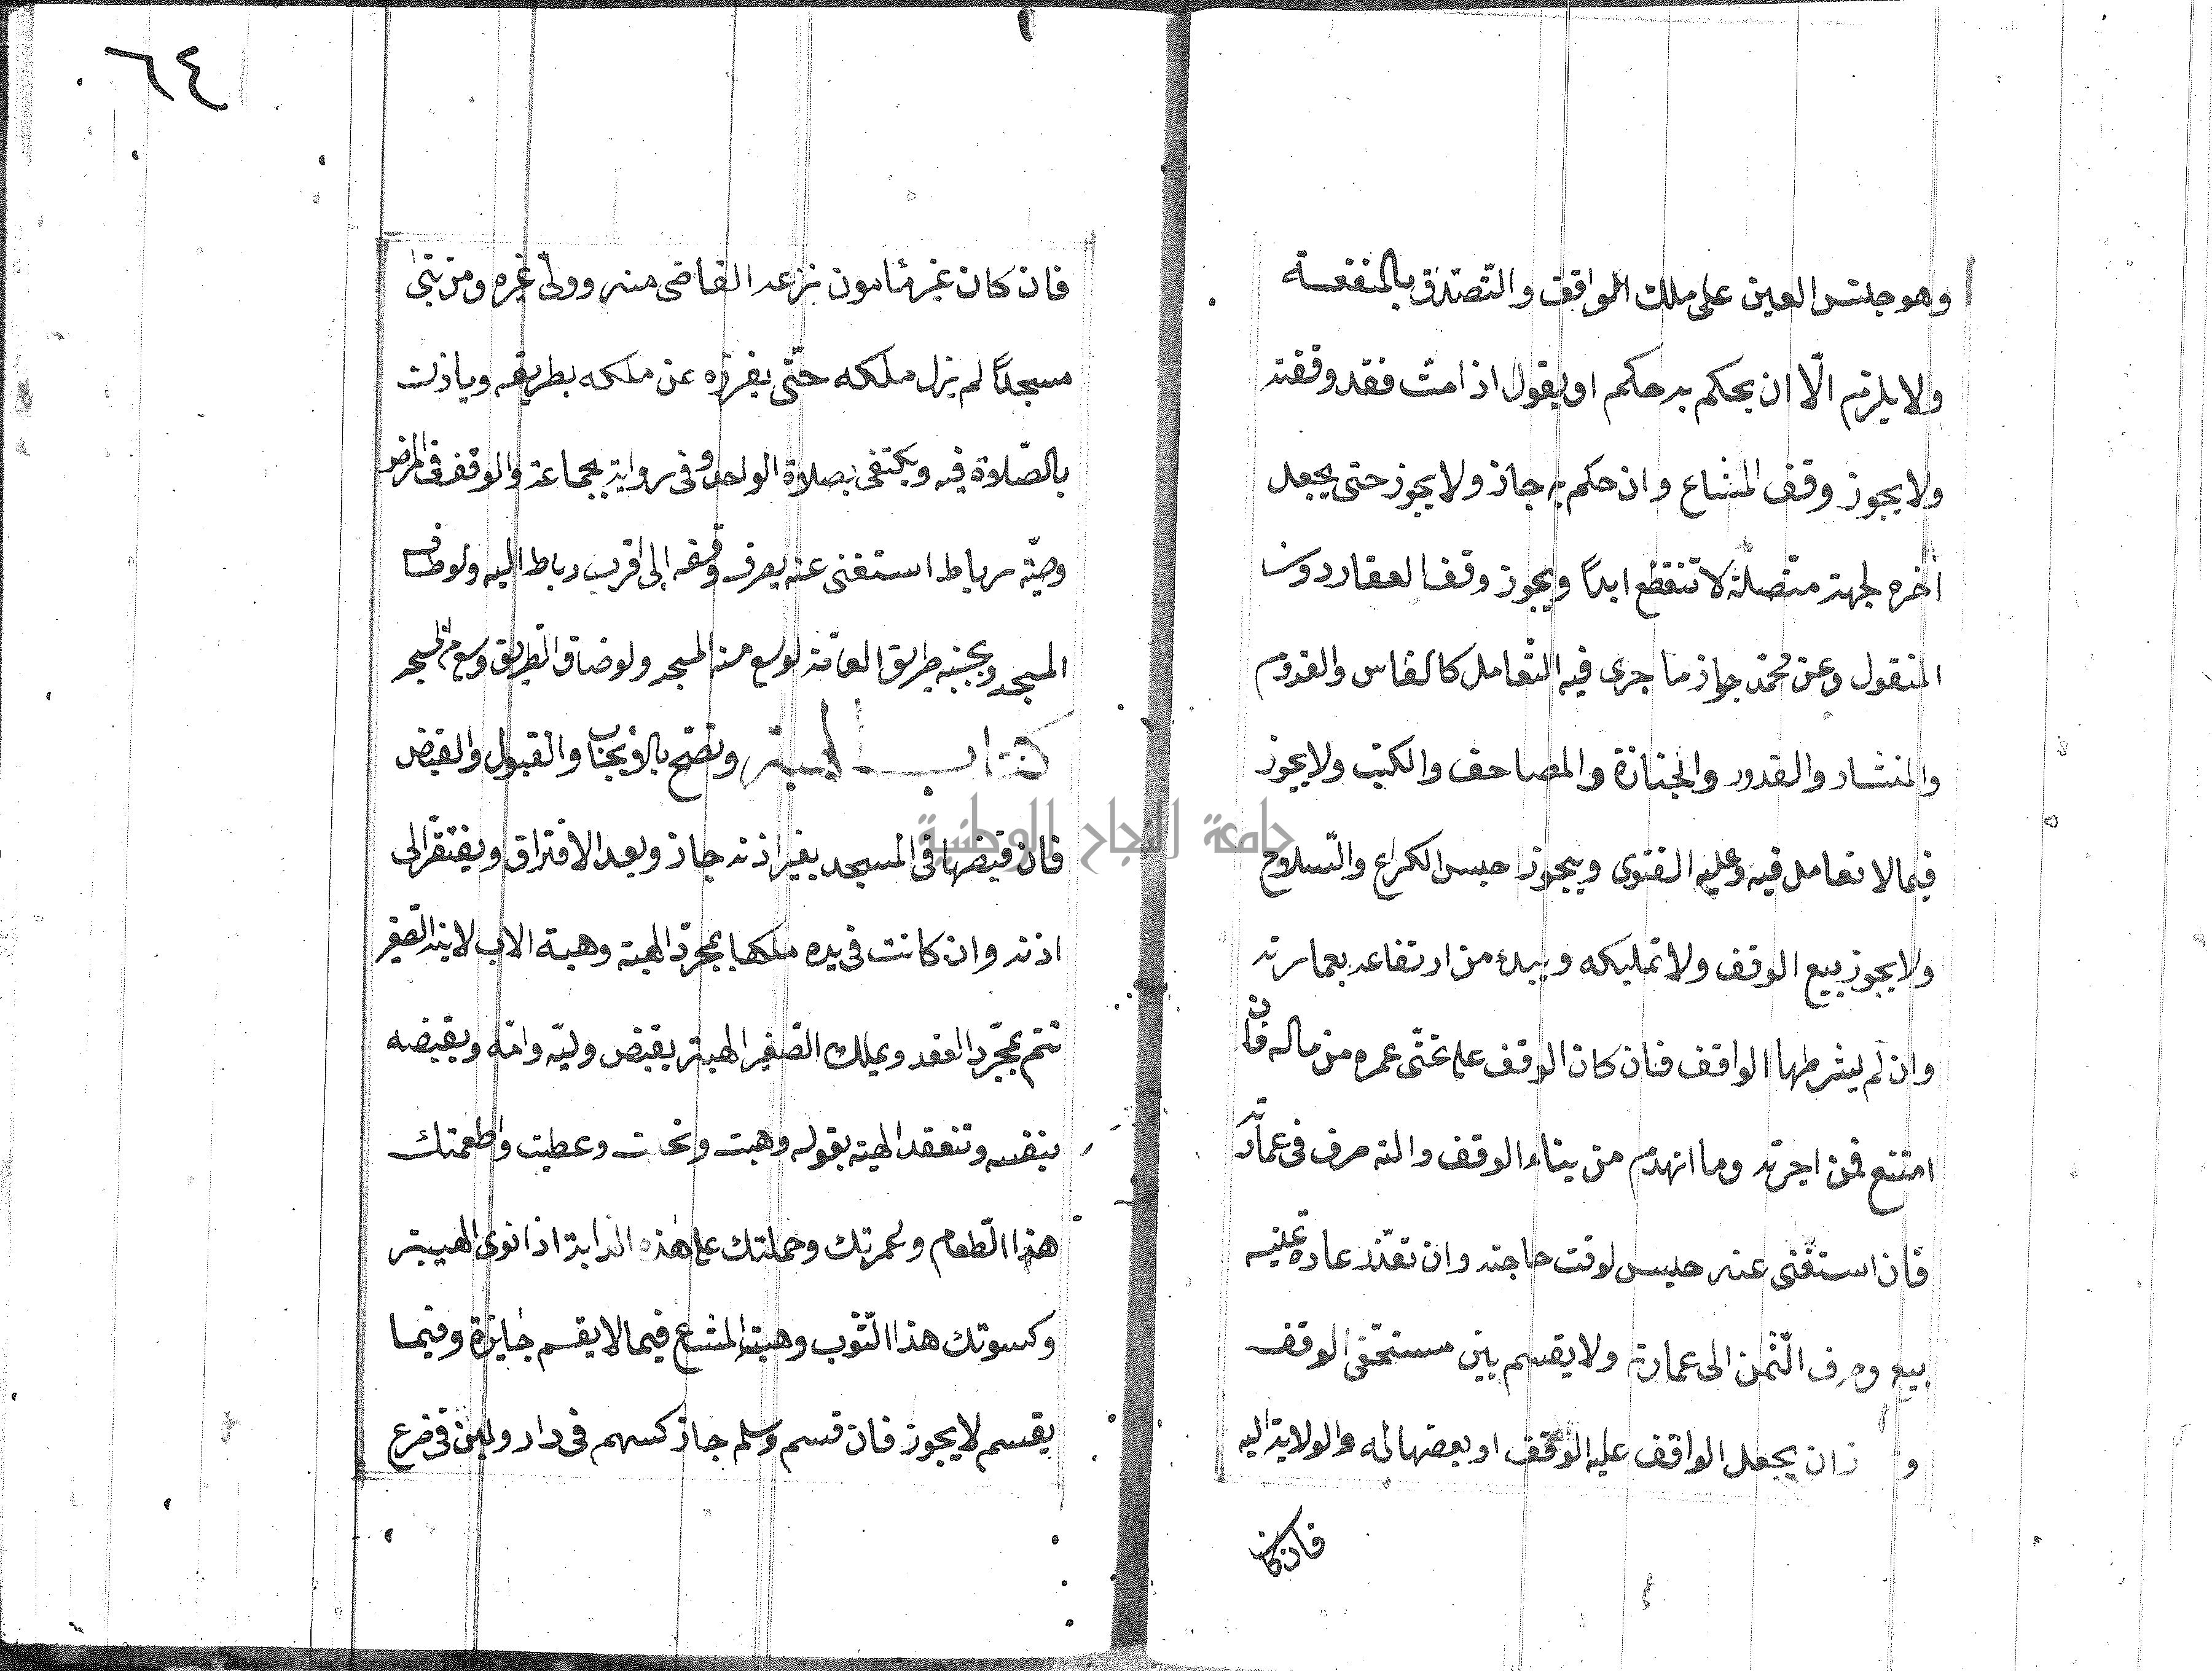 وهو حبس العين على ملك الواقف والتّصدّق بالمنفعة
ولا يلزم الّا ان يحكم به حكم او يقول اذا متّ فقد وقفته
ولا يجوز وقف المشاع وان حكم به جاز ولا يجوز حتى يجعل
اخره لجهة متّصلة لا تنقطع ابدًا ويجوز وقف العقار دون
المنقول وعن محمّد جواز ما جرى فيه التّعامل كالفاس والقدوم
والمنشار والقدور والجنازة والمصاحف والكتب ولا يجوز
فيما لا تعامل فيه وعليه الفتوى ويجوز حبس الكراع والسّلاح
ولا يجوز بيع الوقف ولا تمليكه ويبدء من ارتفاعه بعمارته
وان لم يشرطها الواقف فان كان الوقف على غنّى عمره من ماله فان
امتنع فمن اجرته وما انهدم من بناء الوقف والته صرف فى عمارته
فان استغنى عنه حبس لوقت حاجته وان تعذّر عادة عينه
بيع وصرف الثّمن الى عمارته ولا يقسم بين مستحقّى الوقف
و زان يجعل الواقف عليه الوقف او بعضها له والولاية اليه
فان كان
٦٤
فان كان غير مأمون نزعه القاضى منه وولّى غيره ومن بنى
مسجدًا لم يزل ملكه حتّى يفرزه عن ملكه بطريقه وياذن
بالصّلاوة فيه ويكتفى بصلاوة الواحد وفى رواية بجماعة والوقف فى المرض
وصيّة رباط استغنى عنه يصرف وقفه الى اقرب رباط اليه ولو ضاق
المسجد وبجنبه طريق العامّة لوسع منه المسجد ولو ضاق الطريق وسع من المسجد
كتاب الهبة وتصحّ بالايجاب والقبول والقبض
فان قبضها فى المسجد بغير اذنه جاز وبعد الافتراق ويفتقر الى
اذنه وان كانت فى يده ملكها بمجرّد الهبة وهبة الاب لابنه الصّغير
تتم بمجّرد العقد ويملك الصّغير الهبة بقبض وليّه وامّه وبقبضه
بنفسه وتنعقد الهبة بقوله وهبت ونحلت وعطيت واطعمتك
هذا الّطعام وعمرتك وحملتك على هذه الدابة اذا نوى الهبة
وكسوتك هذا الثّوب وهبة المشاع فيما لا يقسم جايزة وفيما
يقسم لا يجوز فان قسم وسلم جاز كسهم فى دار ولبن فى ضرع
جامعة النجاح الوطنية